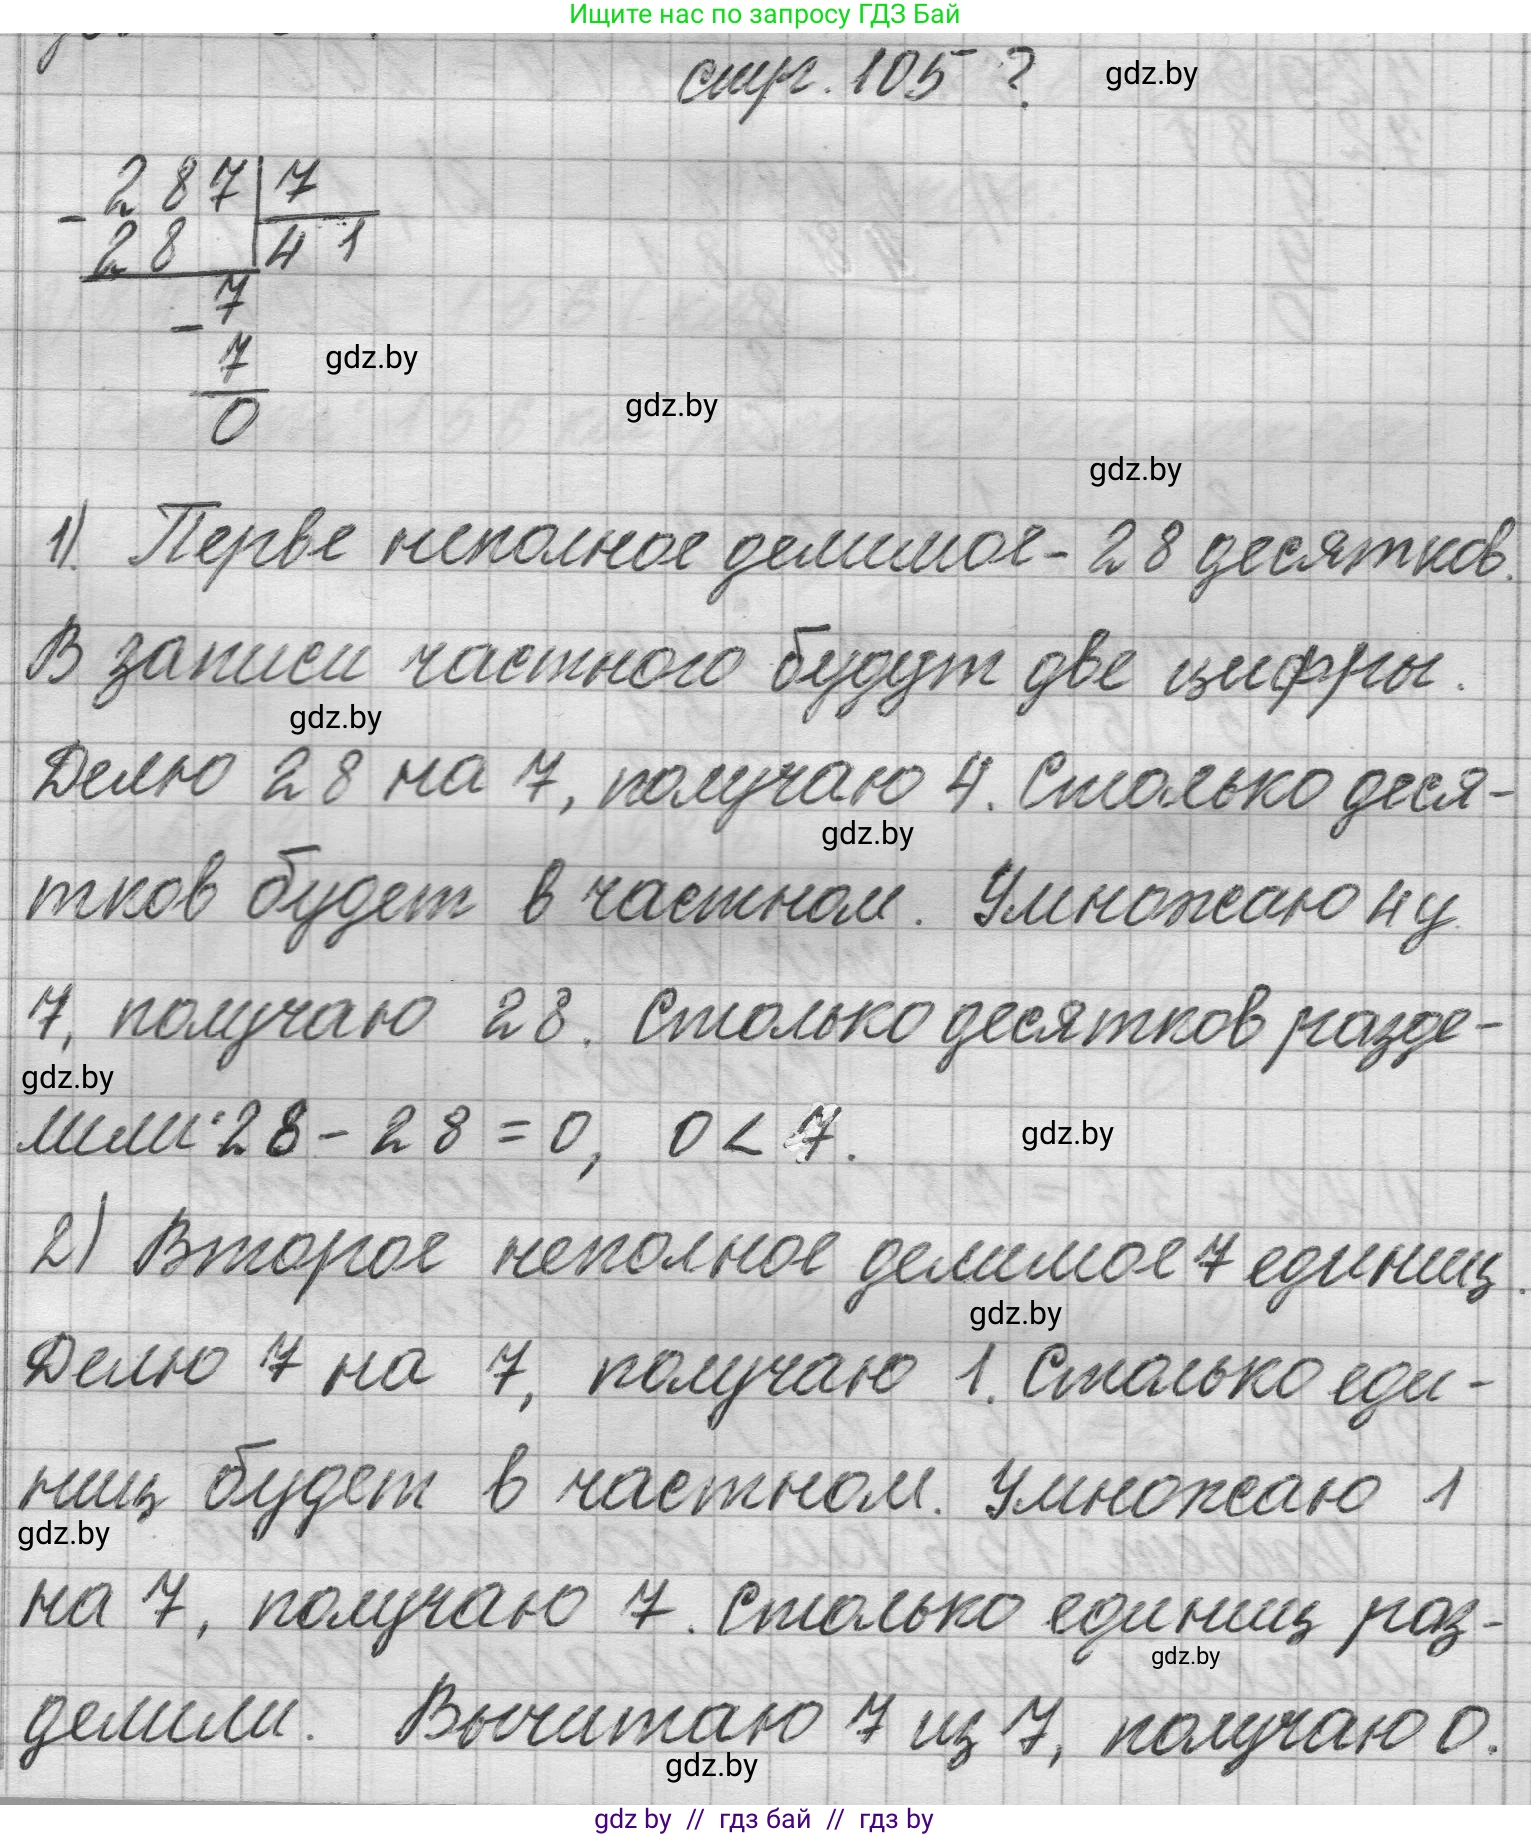 Ищите нас по запросу ГДЗ Бай
стр. 105 ?
gdz.by
- 287 | 7
28 | 41
- 7
7
gdz.by
0
gdz.by
gdz.by
1). Перве неполное делимое - 28 десятков.
В записи частного будут две цифры.
gdz.by
Делю 28 на 7, получаю 4. Столько деся-
gdz.by
тков будет в частном. Умножаю 4 у
7, получаю 28. Столько десятков разде-
gdz.by
лили: 28 - 28 = 0, 0 < 7.
gdz.by
2) Второе неполное делимое 7 единиц.
gdz.by
Делю 7 на 7, получаю 1. Столько еди-
ниц будет в частном. Умножаю 1
gdz.by
на 7, получаю 7. Столько единиц раз-
gdz.by
делили. Вычитаю 7 из 7, получаю 0.
gdz.by
gdz by // гдз бай // гдз by